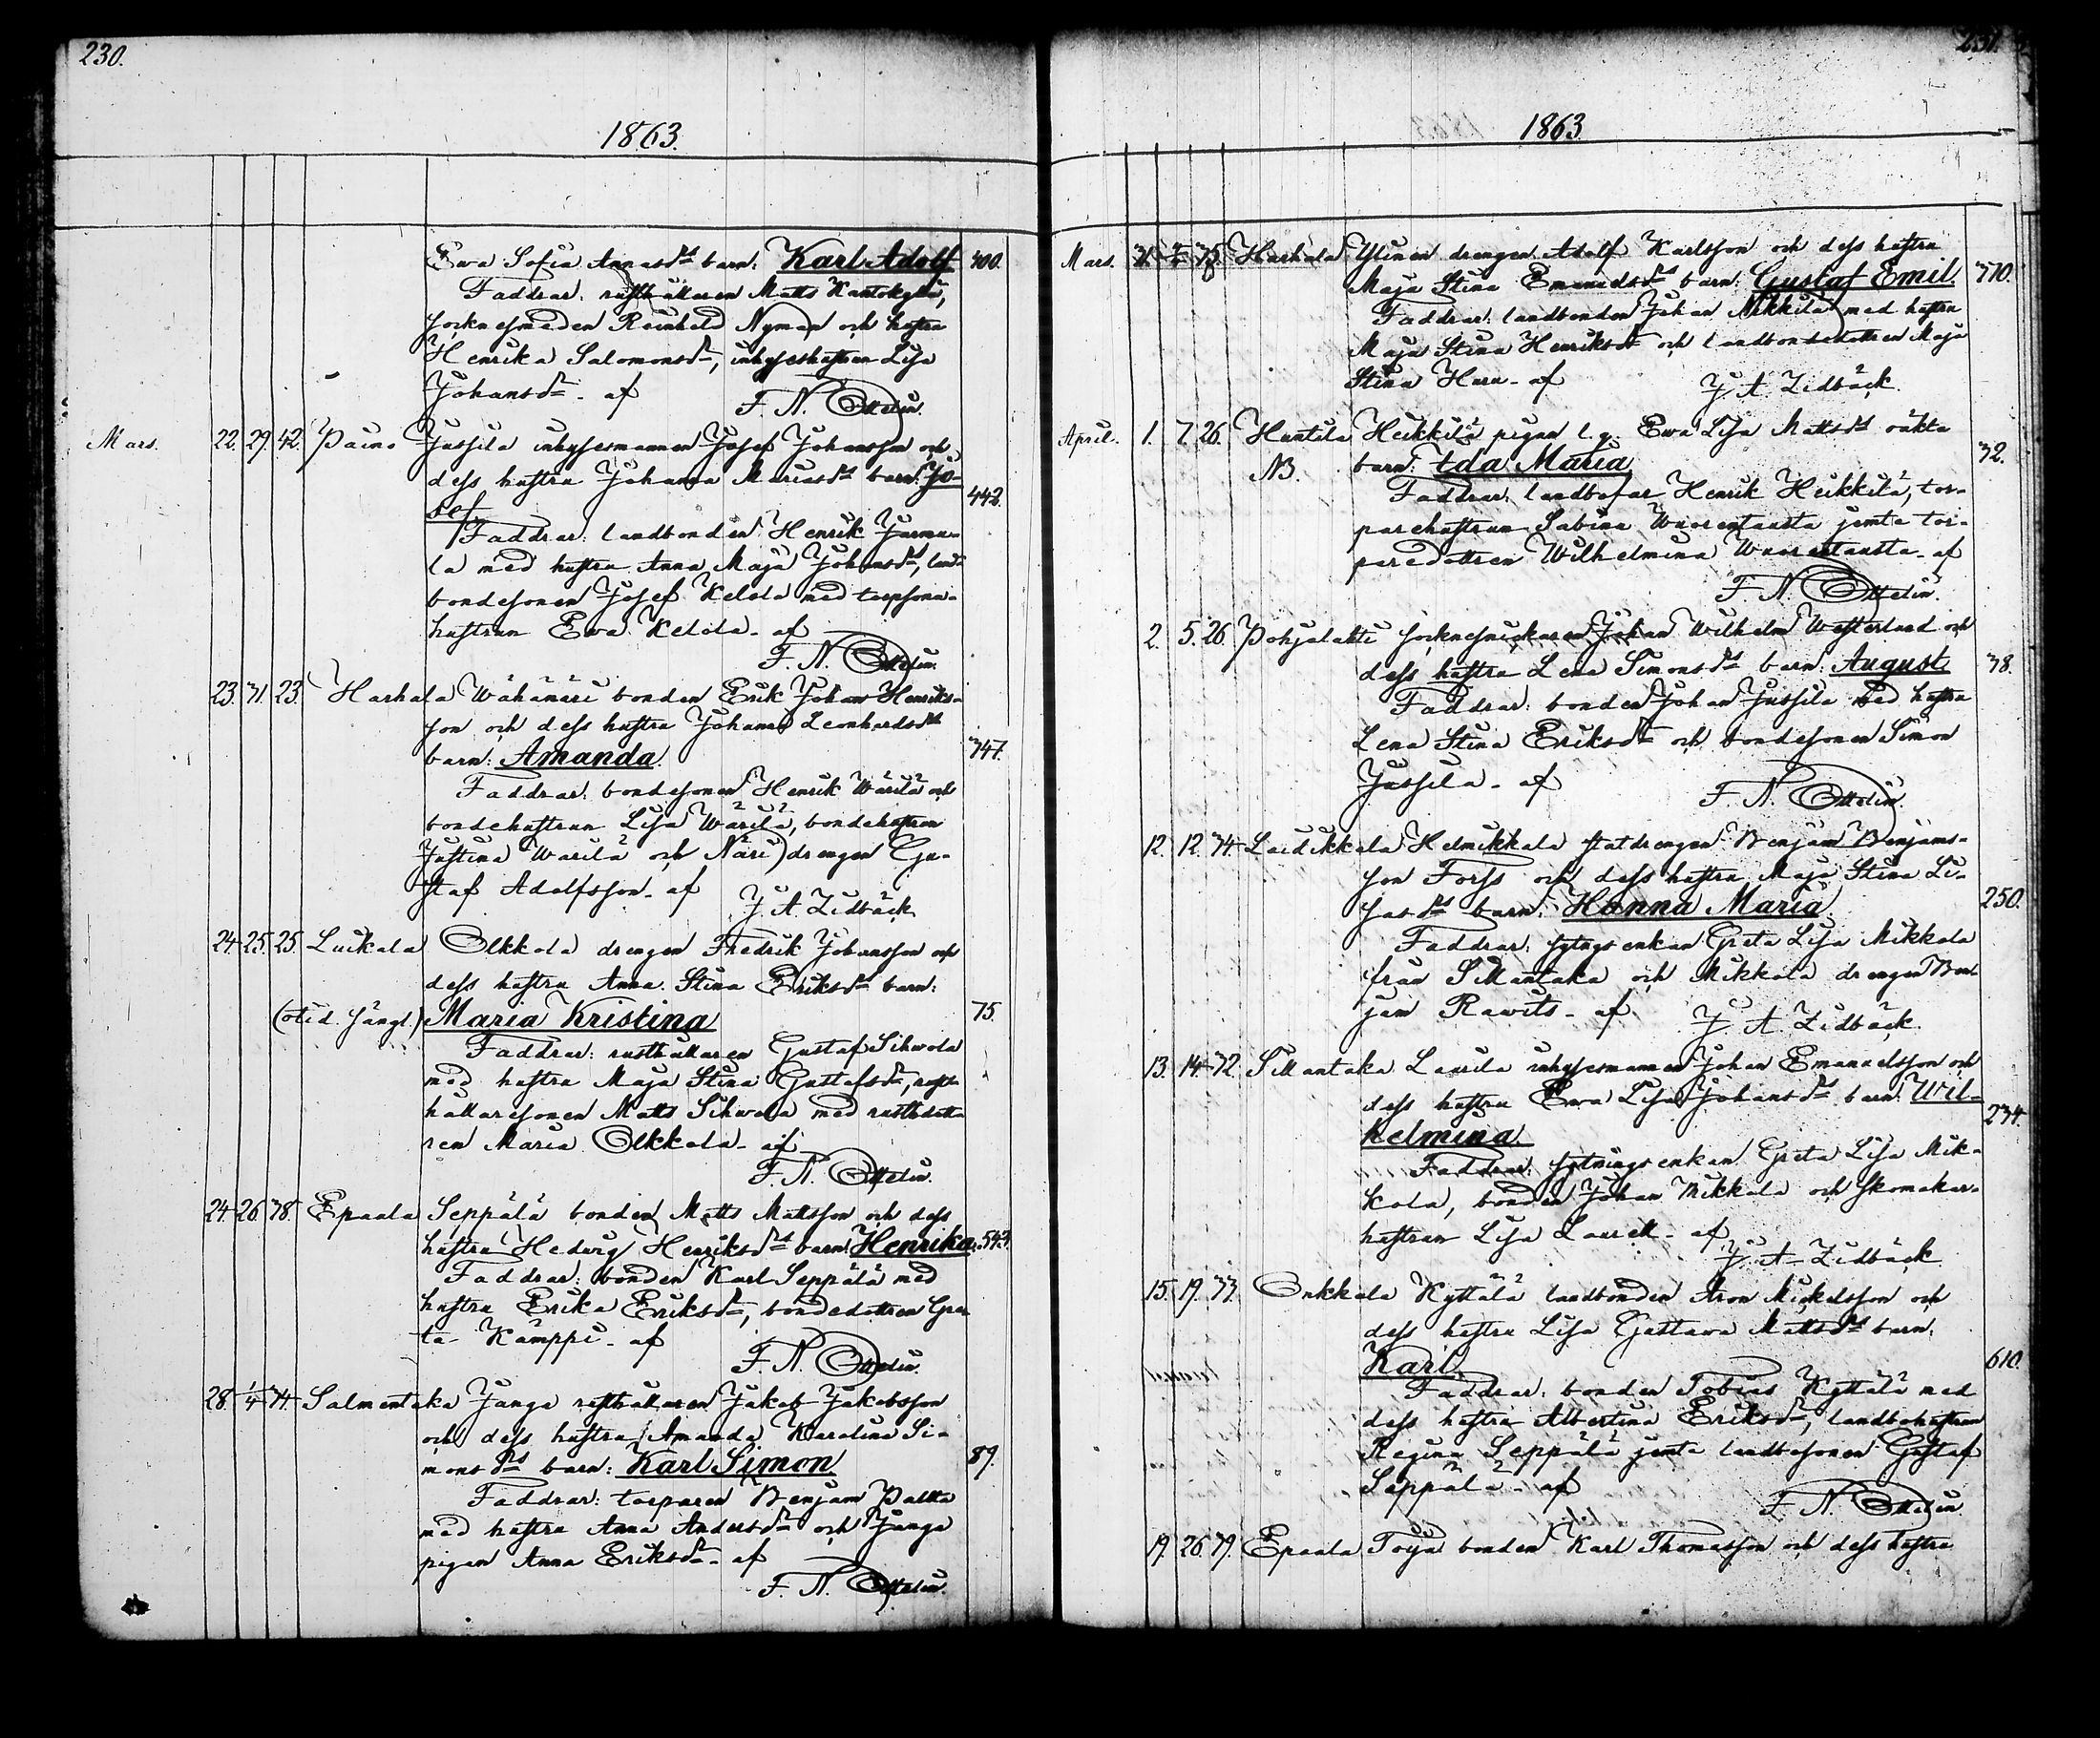 230.
1863.
Ewa Sofia Annasdr barn: Karl Adolf 400.
Faddrar: rusthållaren Matts Kantokylä,
socknesmeden Reinhold Nyman och hustru
Henrika Salomonsdr, inhyseshustrun Lisa
Johansdr - af
F. N. Ottelin.
Mars. 22. 29. 42. Paino Jussila inhysesmannen Josef Johansson och
dess hustru Johanna Mariasdr barn: Jo-
sef 442.
Faddrar: landbonden Henrik Jurmu-
la med hustru Anna Maja Johansdr, land-
bondesonen Josef Kelola med torpare-
hustrun Ewa Kelola - af
F. N. Ottelin.
23. 31. 23. Harhala Wähäniri bonden Erik Johan Henriks-
son och dess hustru Johanna Leonhardsdr
barn: Amanda. 347.
Faddrar: bondesonen Henrik Wärilä och
bondehustrun Lisa Wärilä, bondehustrun
Justina Wärilä och Näri drengen Gu-
staf Adolfsson - af
J. A. Lidbäck
24. 25. 25. Luikala Olkkola drengen Fredrik Johansson och
dess hustru Anna Stina Eriksdr barn:
(otid. sängl.) Maria Kristina 75.
Faddrar: rusthållaren Gustaf Sihvola
med hustru Maja Stina Gustafsdr, rust-
hållaresonen Matts Sihwola med rusthdotte-
ren Maria Olkkola - af
F. N. Ottelin.
24. 26. 38. Epaala Seppälä bonden Matts Mattsson och dess
hustru Hedvig Henriksdr barn: Henrika. 543.
Faddrar: bonden Karl Seppälä med
hustru Erika Eriksdr, bondedottren Gre-
ta Kämppi - af
F. N. Ottelin.
28. 1/4 34. Salmentaka Junga rusthållaren Jakob Jakobsson
och dess hustru Amanda Karolina Si-
monsdr barn: Karl Simon 89.
Faddrar: torparen Benjam Paltta
med hustru Anna Andersdr och Junga
pigan Anna Eriksdr - af
F. N. Ottelin.
231.
1863
Mars. 31. Harhala Ylinen drengen Adolf Karlsson och dess hustru
Maja Stina Emanuelsdr barn: Gustaf Emil. 370.
Faddrar: landbonden Johan Nikkilä med hustru
Maja Stina Henriksdr och landbondedottren Maja
Stina Haru - af
J. A. Lidbäck.
April. 1. 7. 26. Huntila Heikkilä pigan l. g. Ewa Lisa Mattsdr oäkta
NB. barn: Ida Maria 32.
Faddrar: landbofar Henrik Heikkilä, tor-
parehustrun Sabina Wuorentausta jemte tor-
paredottren Wilhelmina Wuorentausta - af
F. N. Ottelin.
2. 5. 26. Pohjalahti socknesnickaren Johan Wilhelm Westerlund och
dess hustru Lena Simonsdr barn: August 38.
Faddrar: bonden Johan Jussila med hustru
Lena Stina Eriksdr och bondesonen Simon
Jussila - af
F. N. Ottelin.
12. 12. 34. Laidikkala Helmikkala statdrengen Benjam Benjams-
son Forss och dess hustru Maja Stina Li-
sasdr barn: Hanna Maria 250.
Faddrar: sytngs enkan Greta Lisa Mikkola
från Sillantaka och Mikkola drengen Ben-
jam Rawits - af
J. A. Lidbäck.
13. 14. 32. Sillantaka Laurila inhysesmannen Johan Emanuelsson och
dess hustru Ewa Lisa Johansdr barn: Wil-
helmina 234.
Faddrar: sytnings enkan Greta Lisa Mik-
kola, bonden Johan Mikkola och skomakar-
hustrun Lisa Laurell - af
J. A. Lidbäck
15. 19. 33. Onkkala Kyttälä landbonden Aron Mickelsson och
dess hustru Lisa Gustava Mattsdr barn:
Karl. 610.
Faddrar: bonden Tobias Kyttälä med
dess hustru Albertina Eriksdr, landbohustrun
Regina Seppälä jemte landbosonen Gustaf
Seppälä - af
F. N. Ottelin.
19. 26. 39. Epaala Toija bonden Karl Thomasson och dess hustru